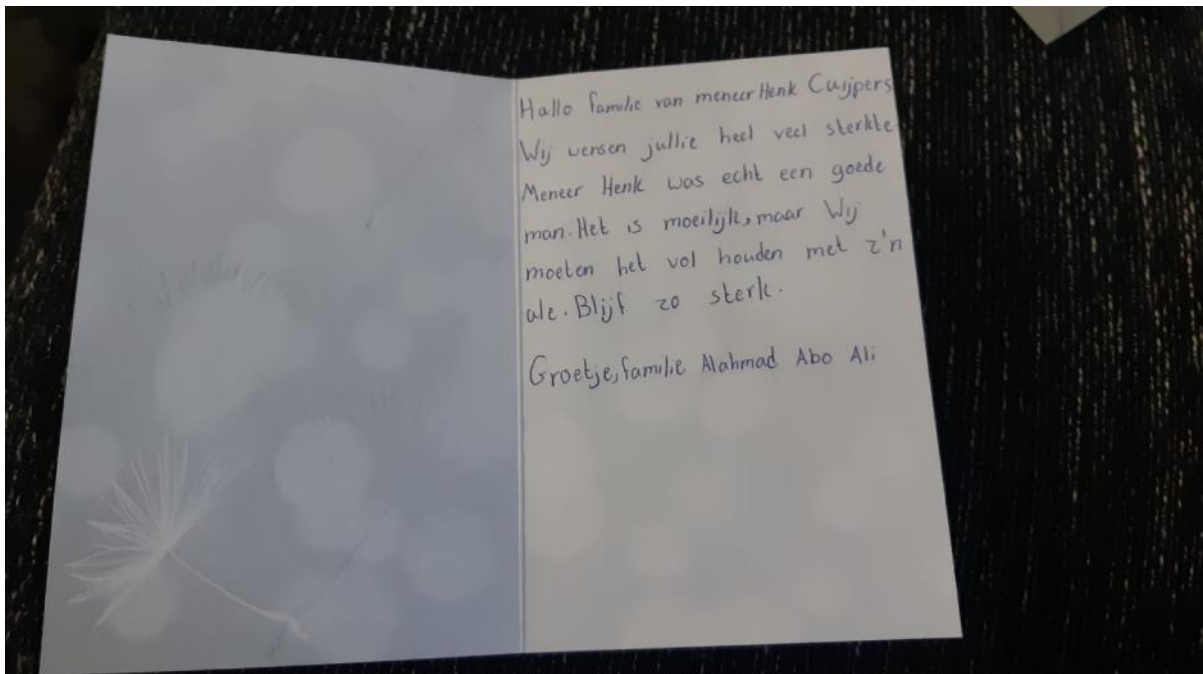 Hallo familie van meneer Henk Cuijpers
Wij wensen jullie heel veel sterkte.
Meneer Henk was echt een goede
man. Het is moeilijk, maar Wij
moeten het vol houden met z'n
ale. Blijf zo sterk.
Groetje, familie Alahmad Abo Ali